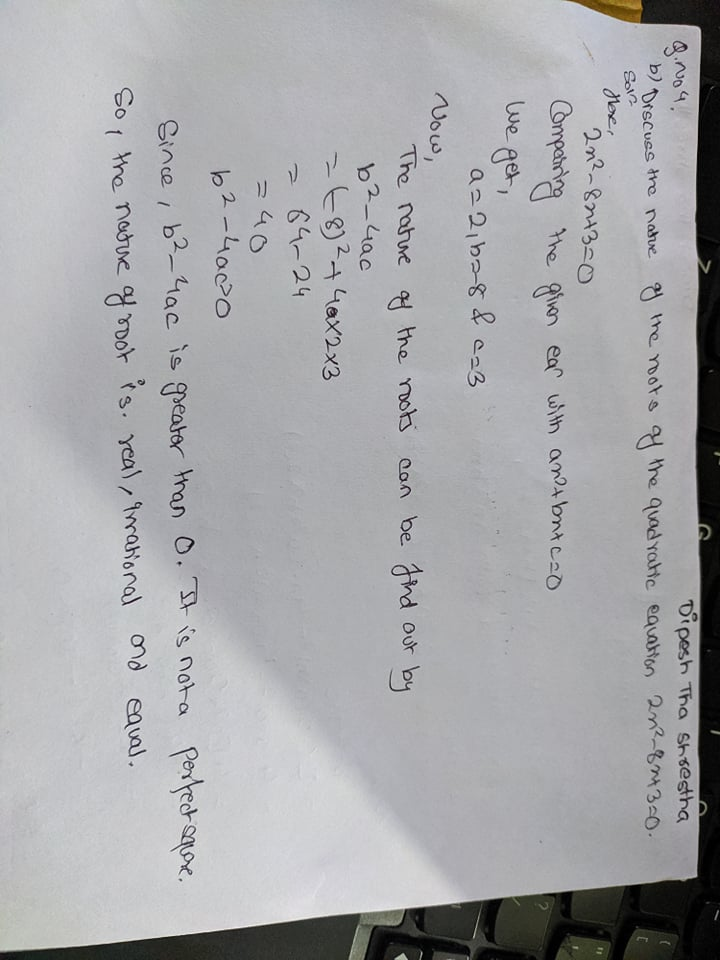 Dipesh Tha Shrestha
Q.No 4.
b) Discuss the nature of the roots of the quadratic equation 2x²-8x+3=0.
Solⁿ
Here,
2x²-8x+3=0
Comparing the given eqⁿ with ax²+bx+c=0
We get,
a=2, b=-8 & c=3
Now,
The nature of the roots can be find out by
b²-4ac
= (-8)²+4×2×3
= 64-24
= 40
b²-4ac>0
Since, b²-4ac is greater than 0. It is not a perfect square.
So, the nature of root is. real, irrational and equal.